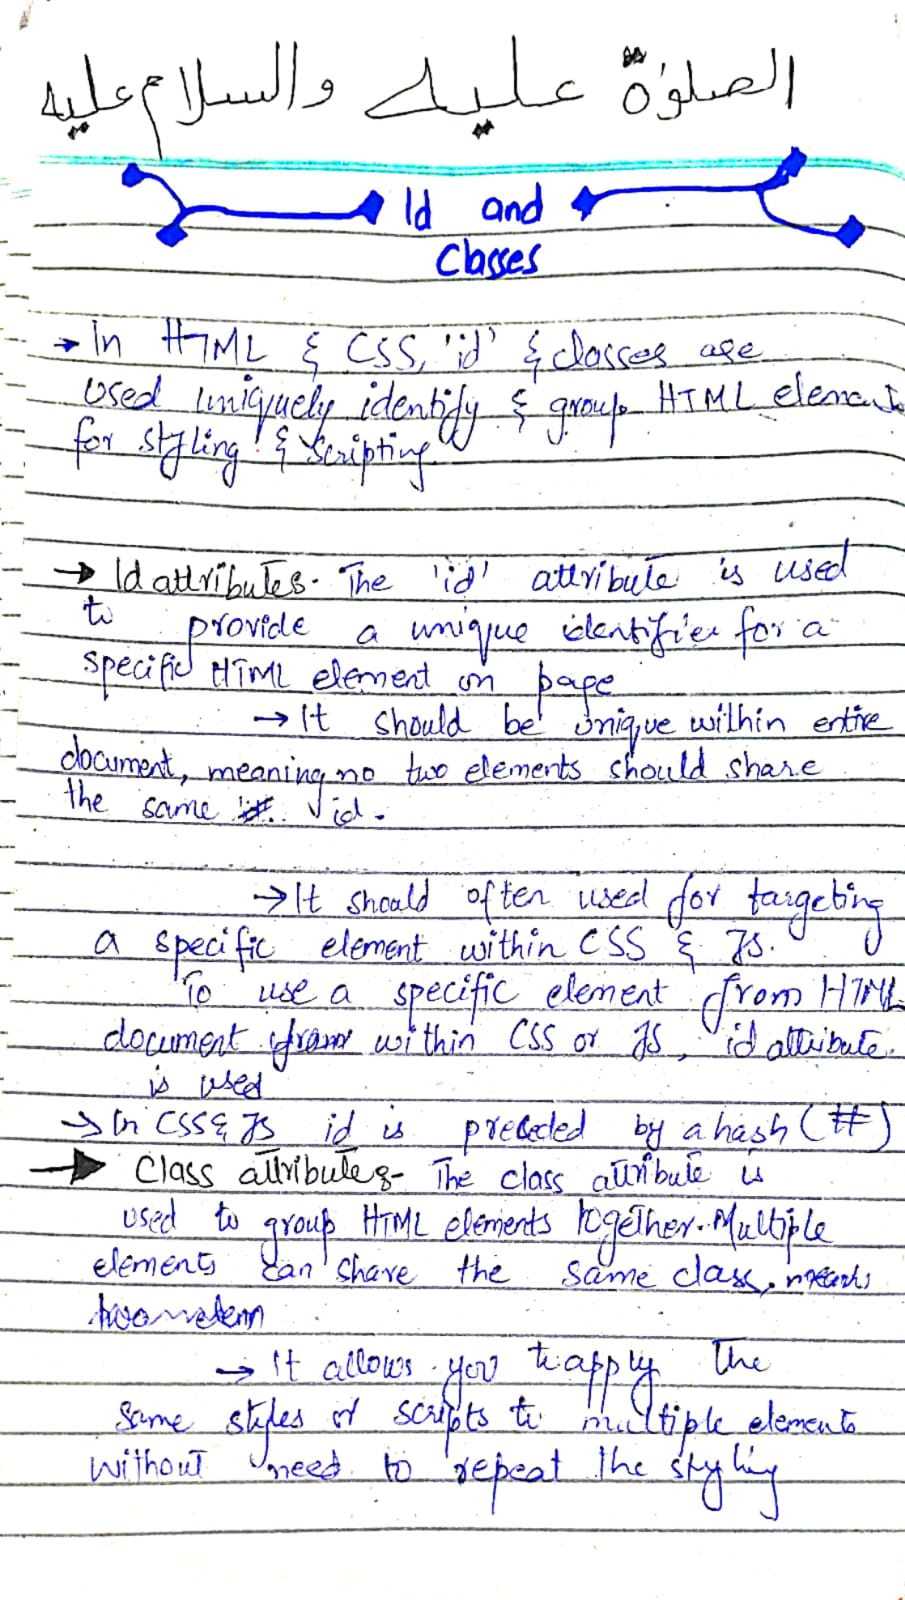 الصلوٰة عليك والسلام عليه
Id and
Classes
→ In HTML & CSS, 'id' & classes are
used uniquely identify & group HTML elements
for styling & Scripting
→ Id attributes. The 'id' attribute is used
to provide a unique identifier for a
specific HTML element on page
→ It should be unique within entire
document, meaning no two elements should share
the same id.
→ It should often used for targeting
a specific element within CSS & JS.
To use a specific element from HTML
document within CSS or JS, id attribute
is used
→ In CSS & JS id is preceded by a hash (#)
→ Class attributes- The class attribute is
used to group HTML elements together. Multiple
elements can share the same class.
→ It allows you to apply the
Same styles or scripts to multiple elements
without need to repeat the styling